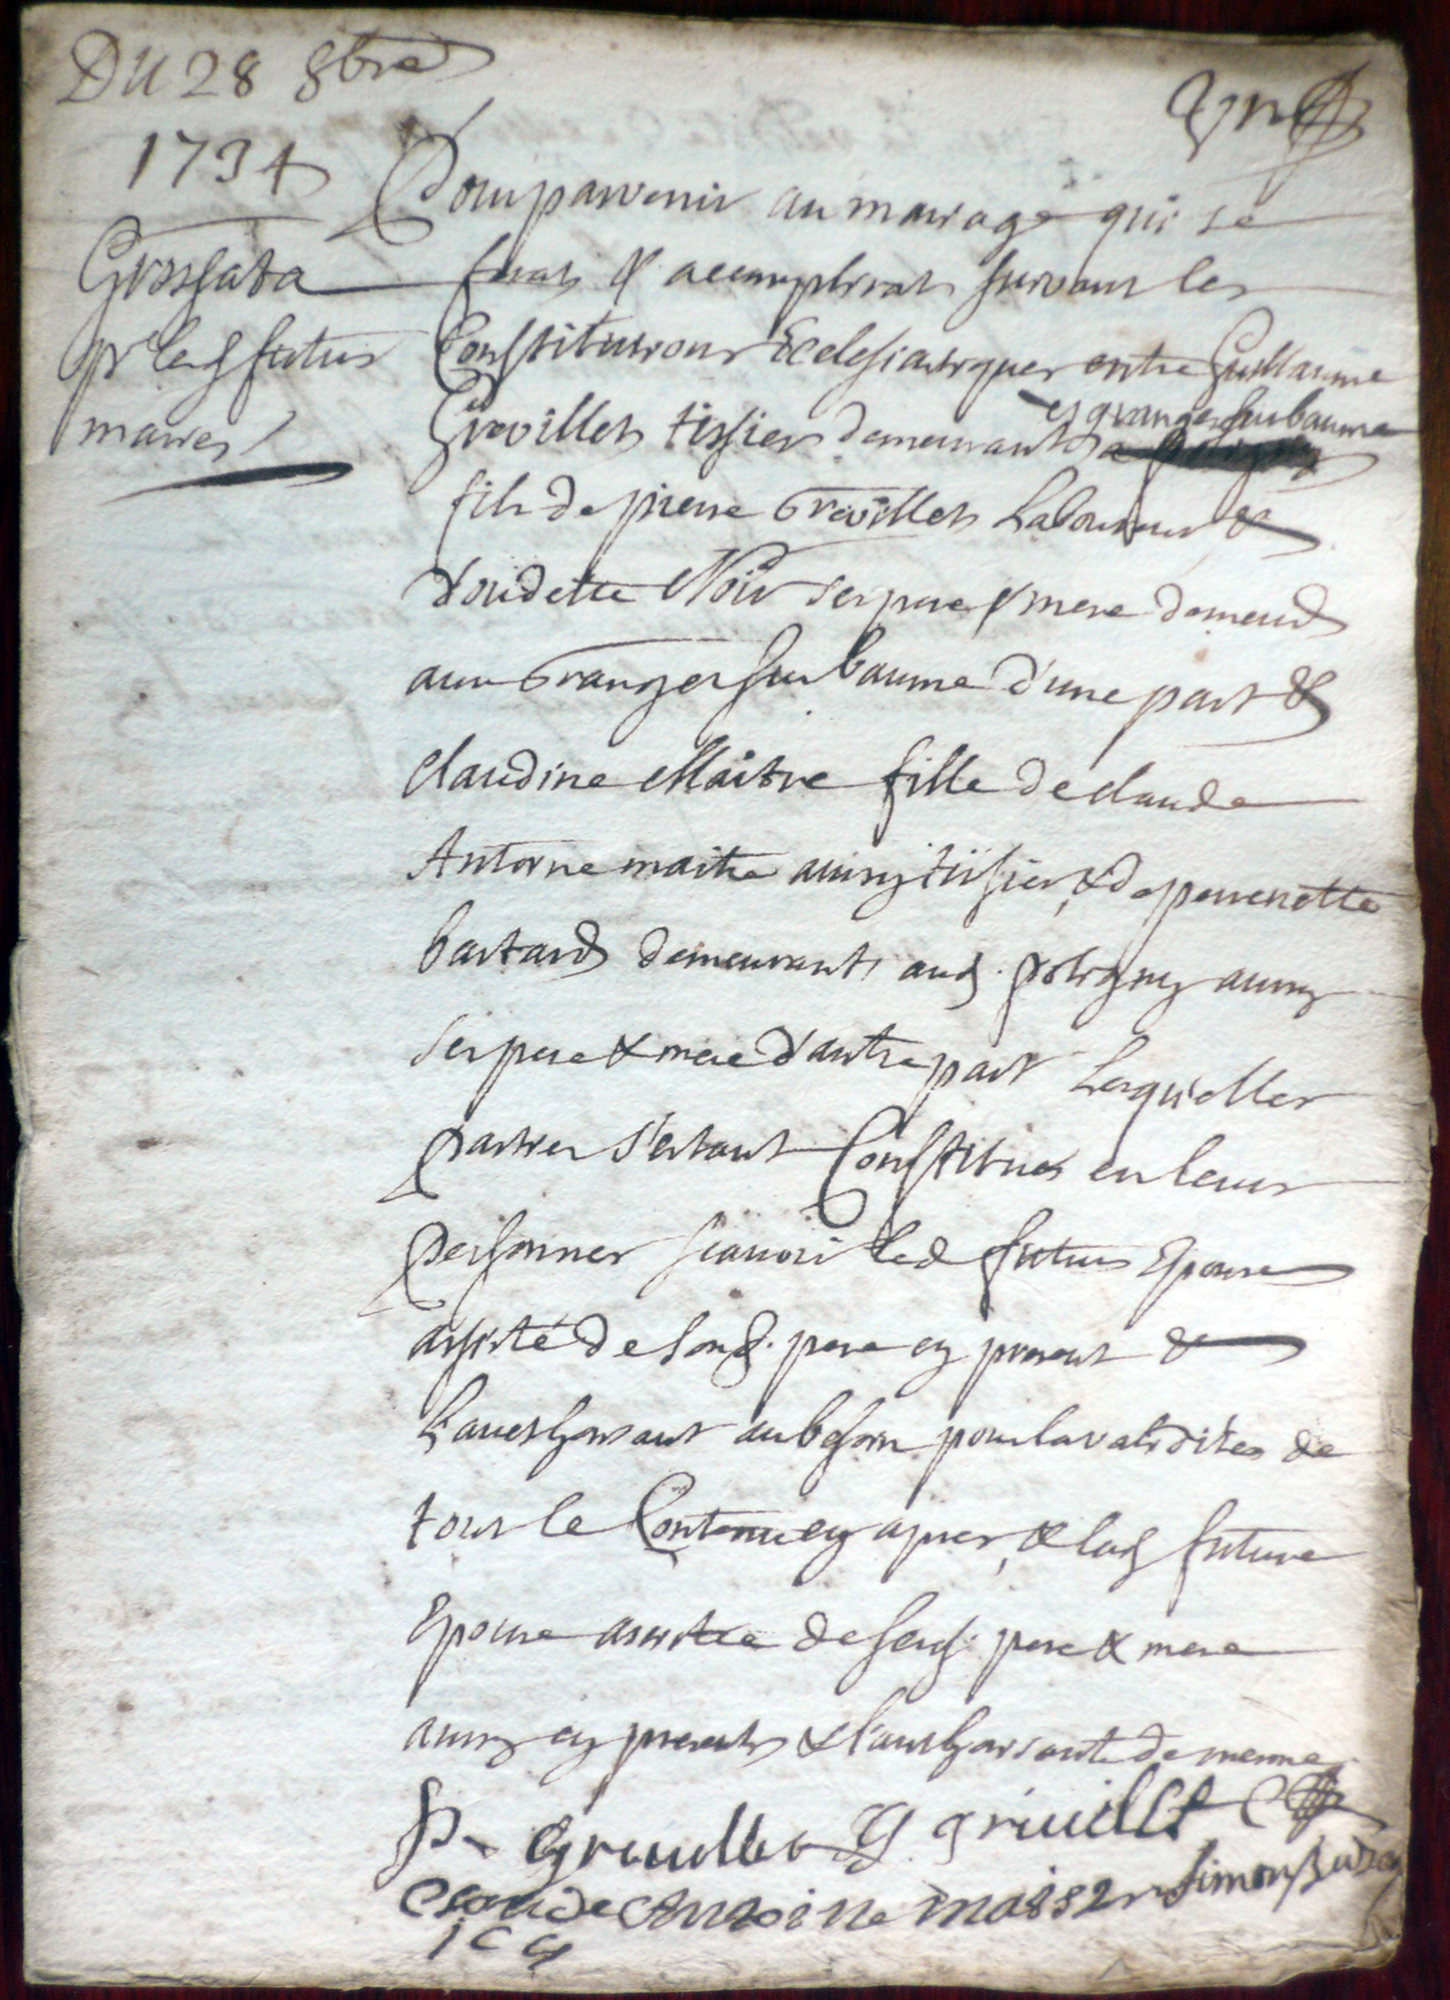 Du 28 8bre
1734
Grossata
pr lesd futurs
mariés
Pour parvenir au mariage qui se
ferat & accomplirat suivant les
Constitutions Ecclesiastiques entre Guillaume
es granges sur baume
Grevillet tissier demeurant a
fils de pierre Grevillet Laboureur &
d'oudette Noir ses pere & mere demeud
aux Granges sur baume d'une part &
Claudine Maitre fille de claude
Antoine maitre aussy tissier, & de pierrenette
bastard demeurants aud. poligny aussy
ses pere & mere d'autre part Lesquelles
parties s'estant Constitués en leurs
personnes scavoir led futur Epoux
assisté de sond. pere cy present &
L'authorisant au besoin pour la validités de
tout le Contenu cy apres, & lad future
Epouse assistée de sesd. pere & mere
aussy cy presents & l'authorisants de mesme
P Grevillet G grivillet
Claude Antoine